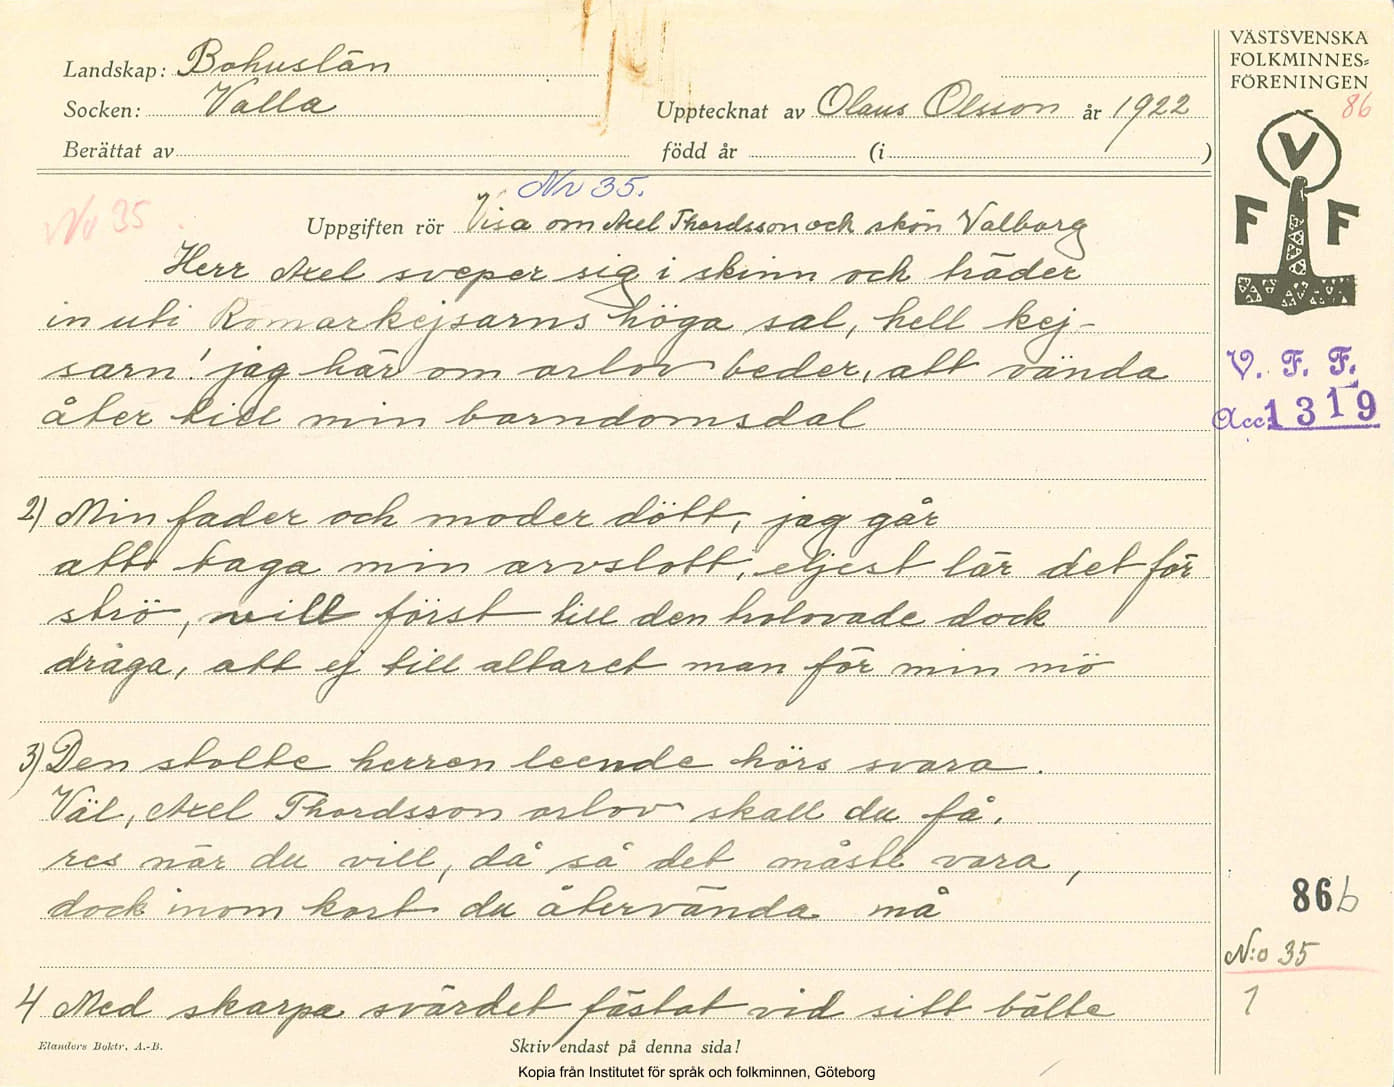 Landskap: Bohuslän
Socken: Valla
Upptecknat av Olaus Olsson år 1922
Berättat av
född år (i )
VÄSTSVENSKA
FOLKMINNES=
FÖRENINGEN
86
V
F F
V. F. F.
Acc: 1319
Nr 35.
No 35.
Uppgiften rör Visa om Axel Thordsson och skön Valborg
Herr Axel sveper sig i skinn och träder
in uti Romarkejsarns höga sal, hell kej-
sarn! jag här om orlov beder, att vända
åter till min barndomsdal
2) Min fader och moder dött, jag går
att taga min arvslott, eljest lär det för
strö, vill först till den trolovade dock
draga, att ej till altaret man för min mö
3) Den stolte herren leende hörs svara.
Väl, Axel Thordsson orlov skall du få,
res när du vill, då så det måste vara,
dock inom kort du återvända må
4 Med skarpa svärdet fästat vid sitt bälte
86 b
N:o 35
1
Elanders Boktr. A.-B.
Skriv endast på denna sida!
Kopia från Institutet för språk och folkminnen, Göteborg